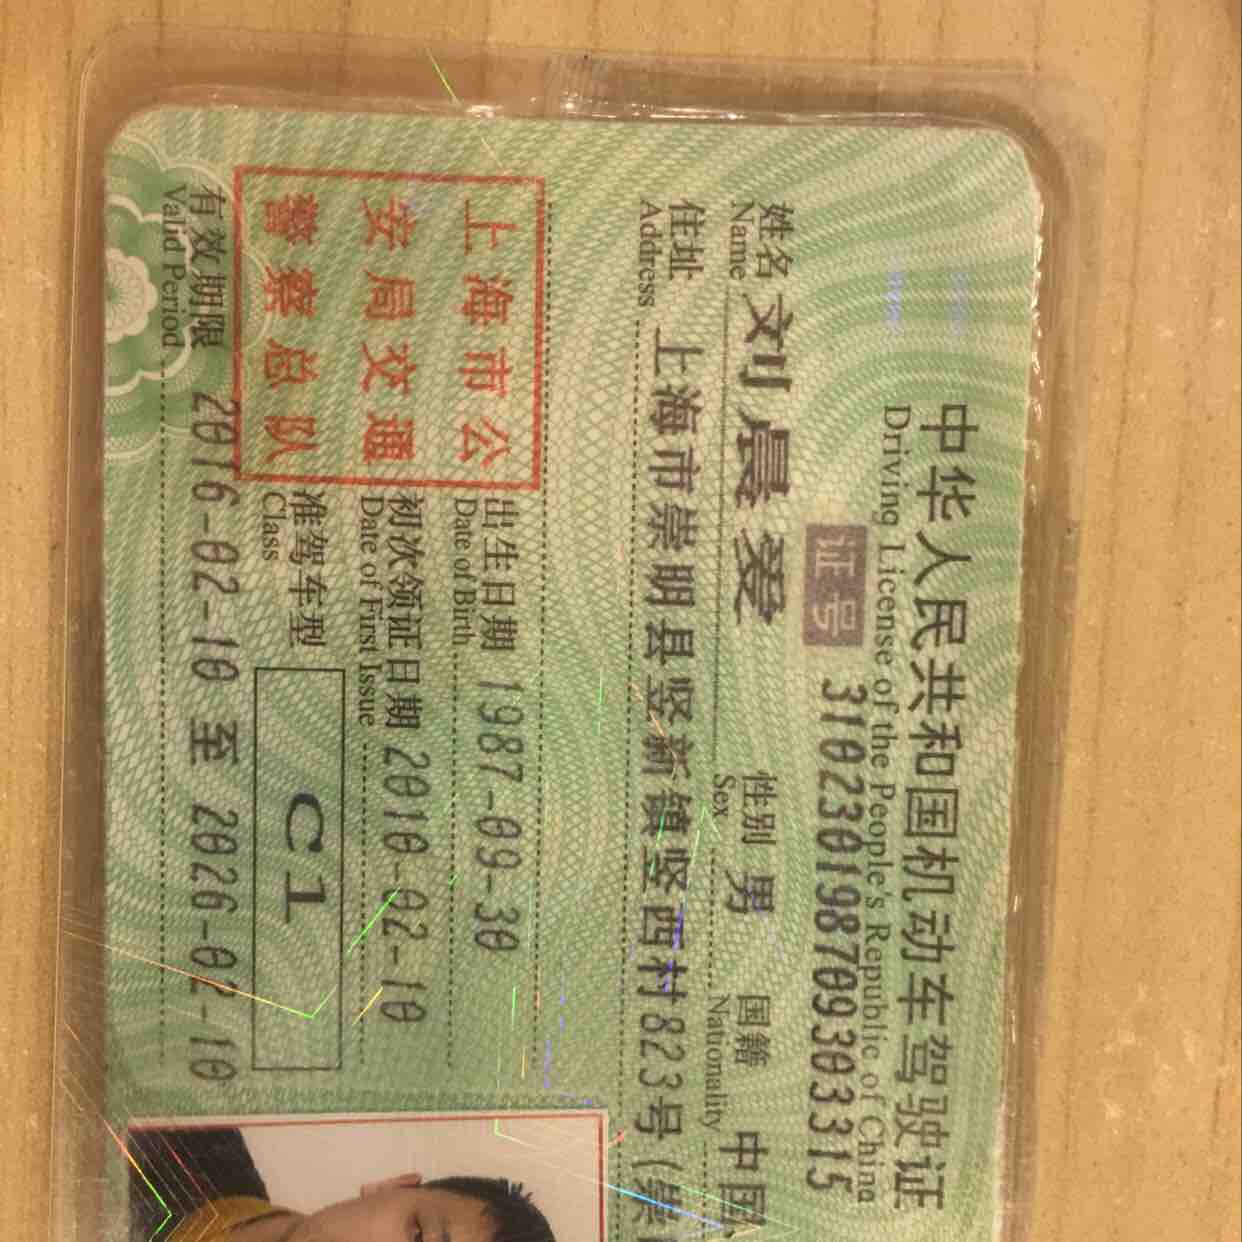 中华人民共和国机动车驾驶证
Driving License of the People's Republic of China
证号 310230198709303315
姓名 刘晨爱 性别 男 国籍 中国
Name Sex Nationality
住址 上海市崇明县竖新镇竖西村823号(崇
Address
上海市公
安局交通
警察总队
出生日期 1987-09-30
Date of Birth
初次领证日期 2010-02-10
Date of First Issue
准驾车型 C1
Class
有效期限 2016-02-10 至 2026-02-10
Valid Period